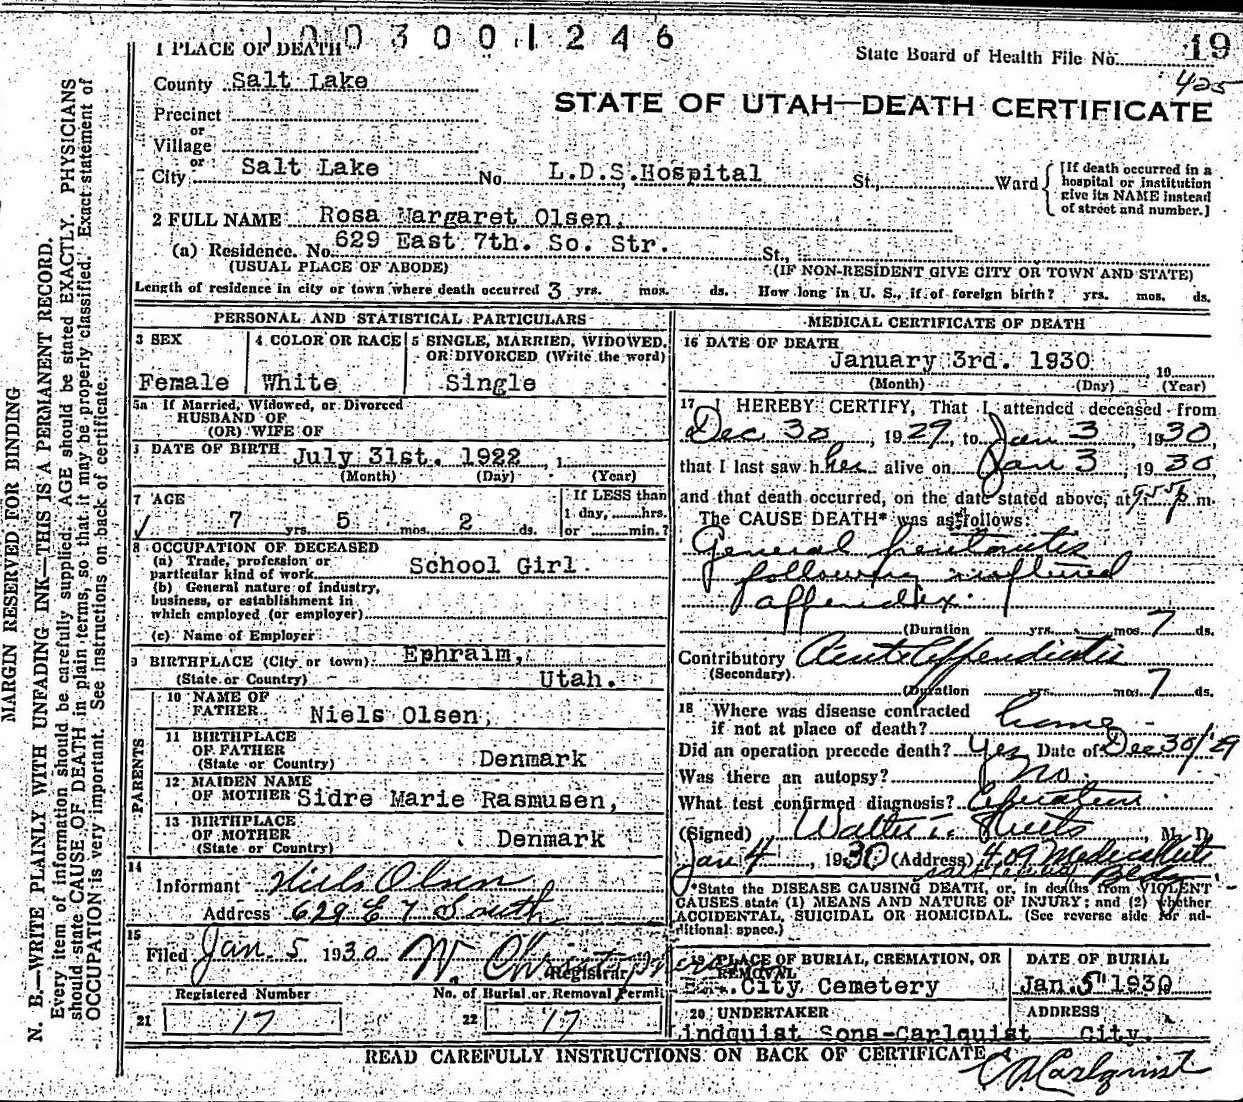 1003001246
1 PLACE OF DEATH
State Board of Health File No. 19
405
County Salt Lake
STATE OF UTAH—DEATH CERTIFICATE
Precinct
or
Village
or
City Salt Lake No. L.D.S. Hospital St., Ward
[If death occurred in a hospital or institution give its NAME instead of street and number.]
2 FULL NAME Rosa Margaret Olsen,
(a) Residence. No. 629 East 7th. So. Str. St.,
(USUAL PLACE OF ABODE) (IF NON-RESIDENT GIVE CITY OR TOWN AND STATE)
Length of residence in city or town where death occurred 3 yrs. mos. ds. How long in U. S., if of foreign birth? yrs. mos. ds.
PERSONAL AND STATISTICAL PARTICULARS
3 SEX
Female
4 COLOR OR RACE
White
5 SINGLE, MARRIED, WIDOWED, OR DIVORCED (Write the word)
Single
5a If Married, Widowed, or Divorced
HUSBAND OF
(OR) WIFE OF
DATE OF BIRTH July 31st. 1922, 1
(Month) (Day) (Year)
7 AGE
7 yrs. 5 mos. 2 ds.
If LESS than
1 day, hrs.
or min.?
8 OCCUPATION OF DECEASED
(a) Trade, profession or
particular kind of work School Girl.
(b) General nature of industry,
business, or establishment in
which employed (or employer)
(c) Name of Employer
9 BIRTHPLACE (City or town) Ephraim,
(State or Country) Utah.
PARENTS
10 NAME OF
FATHER Niels Olsen,
11 BIRTHPLACE
OF FATHER
(State or Country) Denmark
12 MAIDEN NAME
OF MOTHER Sidre Marie Rasmusen,
13 BIRTHPLACE
OF MOTHER
(State or Country) Denmark
14
Informant Niels Olsen
Address 629 E 7 South
15
Filed Jan 5 1930
Registrar
Registered Number
21 17
No. of Burial or Removal Permit
22 17
MEDICAL CERTIFICATE OF DEATH
16 DATE OF DEATH
January 3rd. 1930, 19
(Month) (Day) (Year)
17 I HEREBY CERTIFY, That I attended deceased from
Dec 30, 1929, to Jan 3, 1930,
that I last saw h er alive on Jan 3, 1930,
and that death occurred, on the date stated above, at 5:55 p m.
The CAUSE DEATH* was as follows:
General peritonitis
following ruptured
appendix.
(Duration yrs. mos. 7 ds.
Contributory Acute Appendicitis
(Secondary)
(Duration yrs. mos. 7 ds.
18 Where was disease contracted
if not at place of death? home
Did an operation precede death? Yes Date of Dec 30/29
Was there an autopsy? No
What test confirmed diagnosis? Operation
(Signed) Walter M. D.
Jan 4, 1930 (Address) 409 Medical Arts
Bldg
*State the DISEASE CAUSING DEATH, or, in deaths from VIOLENT
CAUSES state (1) MEANS AND NATURE OF INJURY; and (2) whether
ACCIDENTAL, SUICIDAL OR HOMICIDAL. (See reverse side for ad-
ditional space.)
19 PLACE OF BURIAL, CREMATION, OR
REMOVAL
City Cemetery
DATE OF BURIAL
Jan. 5" 1930
20 UNDERTAKER
indquist Sons-Carlquist
ADDRESS
City.
READ CAREFULLY INSTRUCTIONS ON BACK OF CERTIFICATE
Carlquist
MARGIN RESERVED FOR BINDING
N. B.—WRITE PLAINLY WITH UNFADING INK—THIS IS A PERMANENT RECORD.
Every item of information should be carefully supplied. AGE should be stated EXACTLY. PHYSICIANS
should state CAUSE OF DEATH in plain terms, so that it may be properly classified. Exact statement of
OCCUPATION is very important. See instructions on back of certificate.